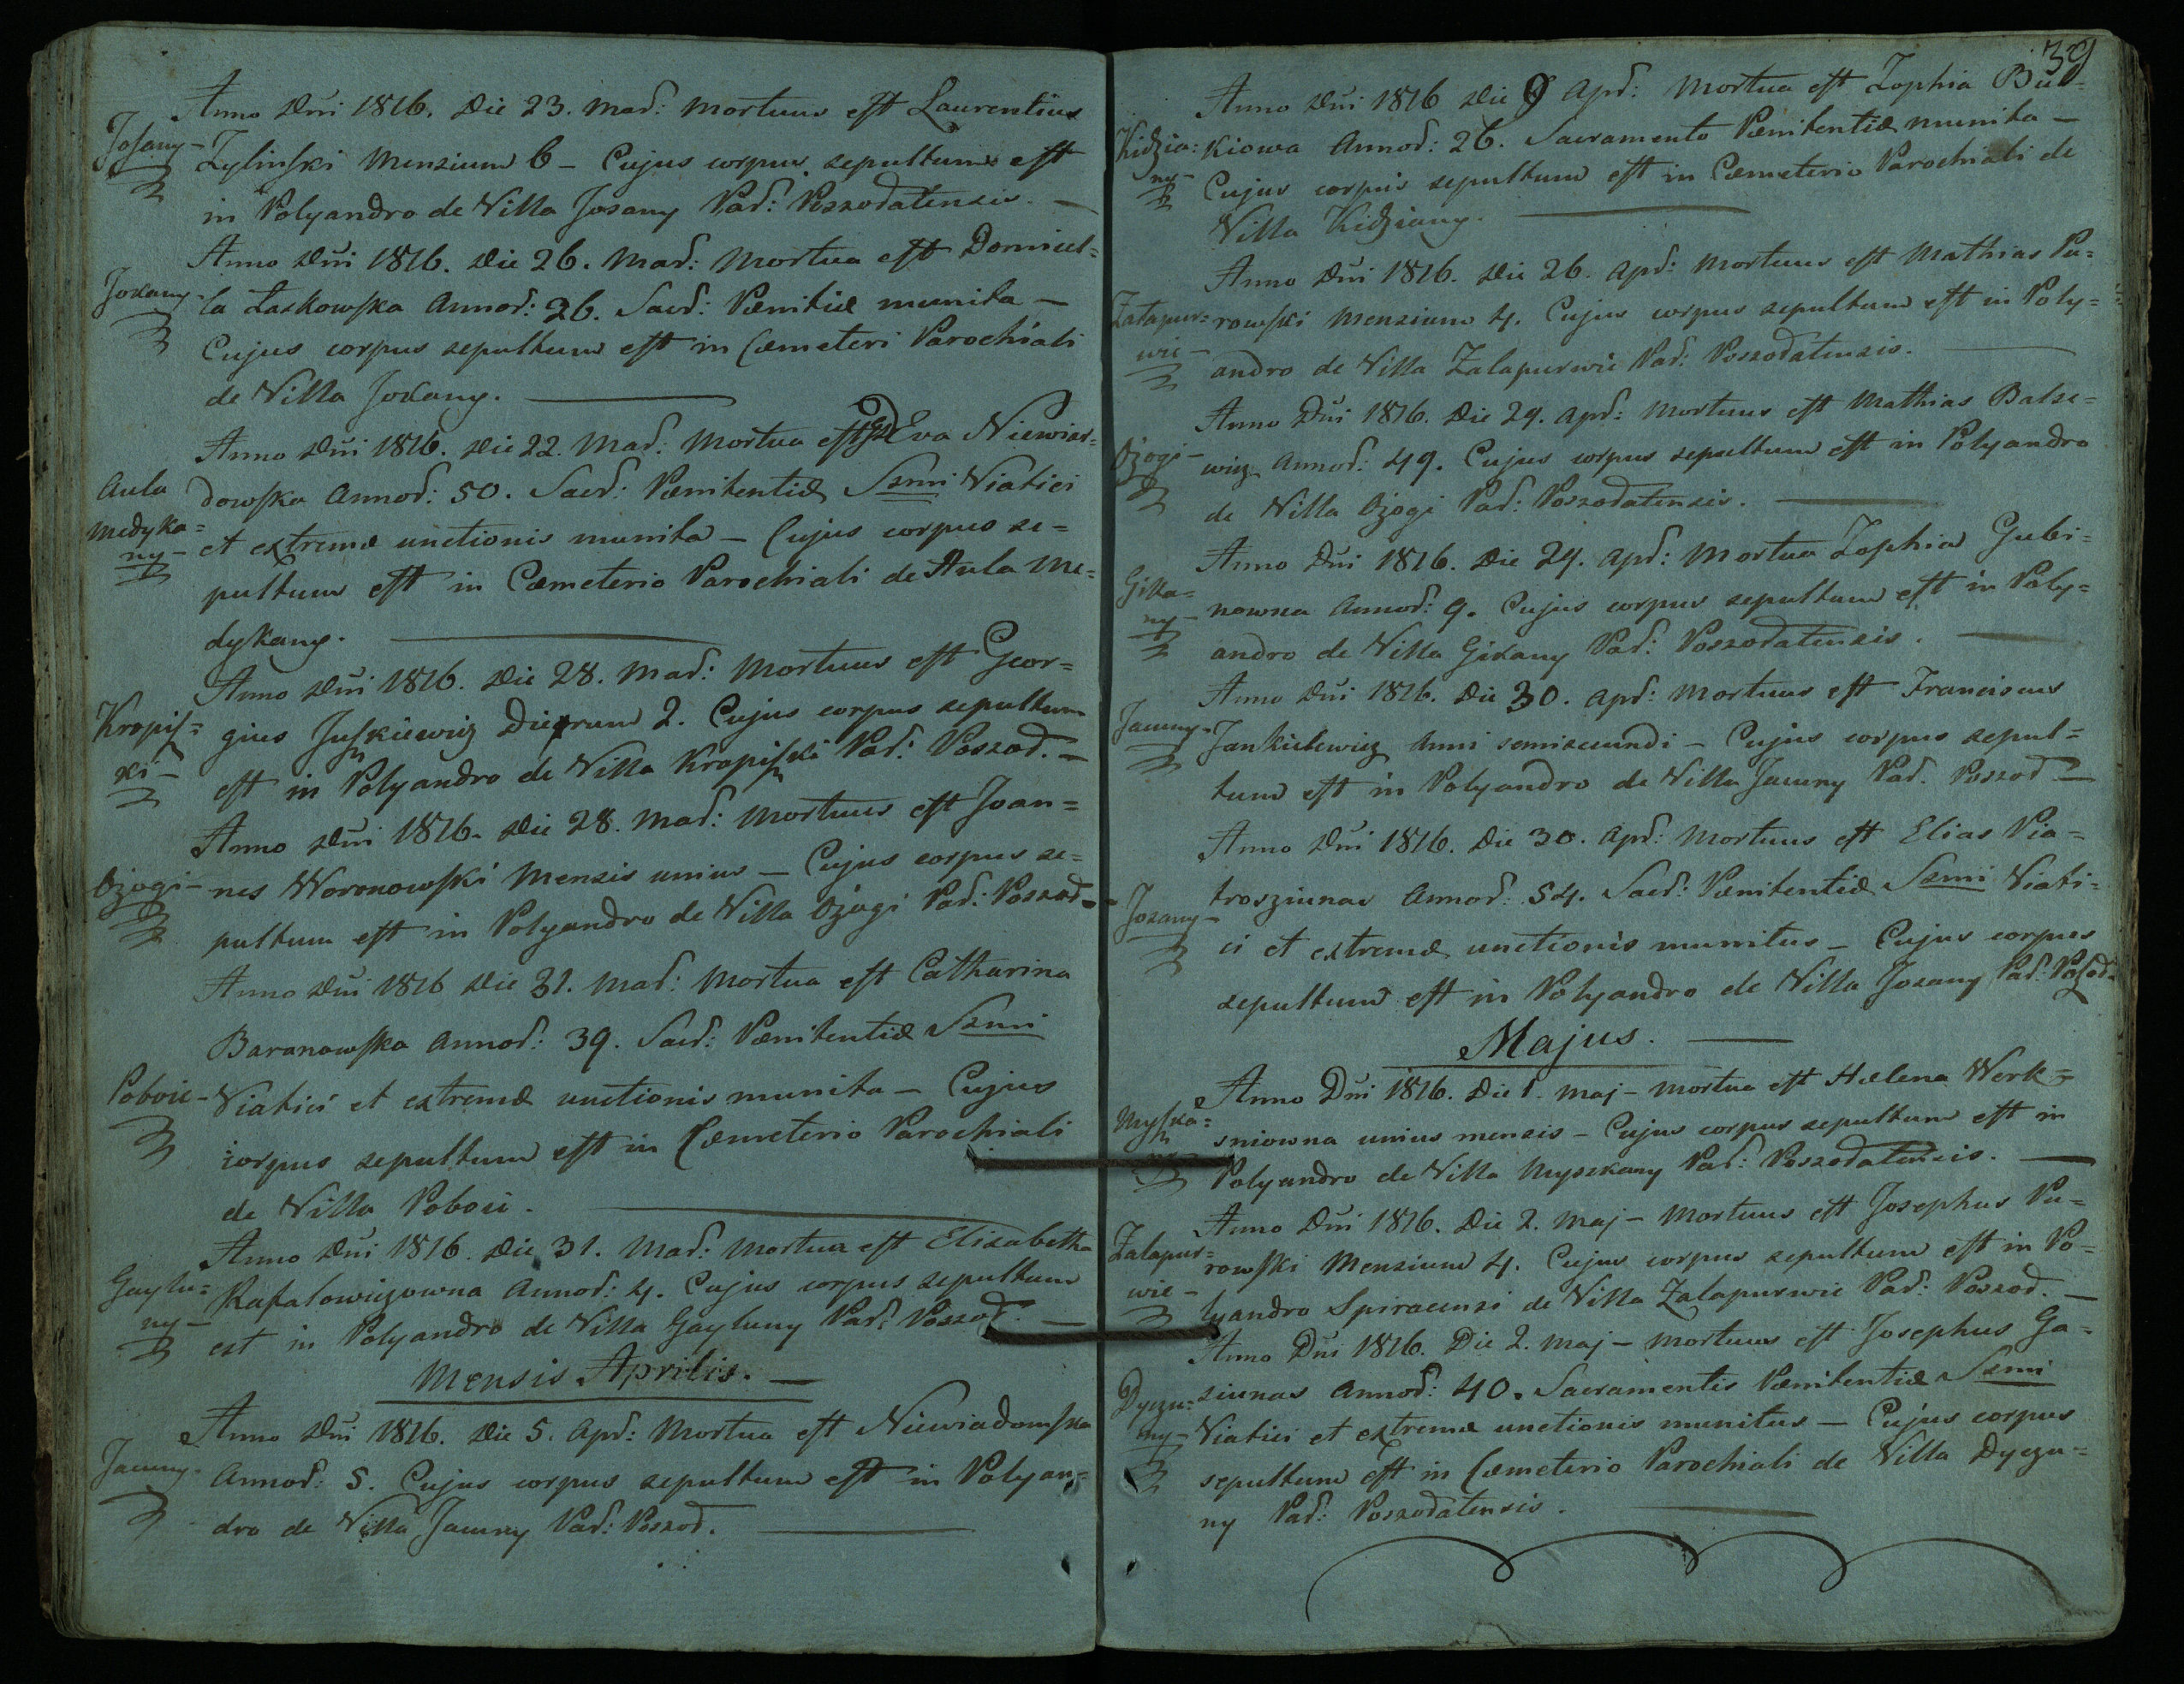 Anno Dni 1816. Die 23. Mar: Mortuus est Laurentius
Josany- Zylinski Mensium 6 – Cujus corpus sepultum est
in Polyandro de Villa Josany Par: Poszodatensis. —
Anno Dni 1816. Die 26. Mar: Mortua est Domicel=
Joxany- la Laskowska Annor: 26. Sacr: Pænitiæ munita —
Cujus corpus sepultum est in Cæmeteri Parochiali
de Villa Joxany. —
Anno Dni 1816. Die 22. Mar: Mortua est GD Eva Niewiar=
Aula dowska Annor: 50. Sacr: Pænitentiæ Ssmi Viatici
Medyka=
ny- et extremæ unctionis munita – Cujus corpus se=
pultum est in Cæmeterio Parochiali de Aula Me=
dykany. —
Anno Dni 1816. Die 28. Mar: Mortuus est Geor=
Kropisz= gius Juszkiewicz Dierum 2. Cujus corpus sepultum
ki- est in Polyandro de Villa Kropiszki Par: Poszod. –
Anno Dni 1816. Die 28. Mar: Mortuus est Joan=
Ożogi- nes Woronowski Mensis unius – Cujus corpus se=
pultum est in Polyandro de Villa Ożogi Par: Poszod-
Anno Dni 1816 Die 31. Mar: Mortua est Catharina
Baranowska Annor: 39. Sacr: Pænitentiæ Ssmi
Poboie- Viatici et extremæ unctionis munita – Cujus
corpus sepultum est in Cæmeterio Parochiali
de Villa Poboie. —
Anno Dni 1816. Die 31. Mar: Mortua est Elisabetha
Gaylu= Rafalowiczowna Annor: 4. Cujus corpus sepultum
ny- est in Polyandro de Villa Gayluny Par: Poszod. –
Mensis Aprilis. —
Anno Dni 1816. Die 5. Apr: Mortua est Niewiadomska
Jauny- Annor: 5. Cujus corpus sepultum est in Polyan=
dro de Villa Jauny Par: Poszod. —
39
Anno Dni 1816 Die 9 Apr: Mortua est Zophia But=
Kidzia= kiowa Annor: 26. Sacramento Pænitentiæ munita —
ny- Cujus corpus sepultum est in Cæmeterio Parochiali de
Villa Kidziany. —
Anno Dni 1816. Die 26. Apr: Mortuus est Mathias Pu=
Zalapur= rowski Mensium 4. Cujus corpus sepultum est in Poly=
wie- andro de Villa Zalapurwie Par: Poszodatensis. —
Anno Dni 1816. Die 29. Apr: Mortuus est Mathias Balce=
Ożogi- wicz Annor: 49. Cujus corpus sepultum est in Polyandro
de Villa Ożogi Par: Poszodatensis. —
Anno Dni 1816. Die 29. Apr: Mortua Zophia Gubi=
Gika= nowna Annor: 9. Cujus corpus sepultum est in Poly=
ny- andro de Villa Gikany Par: Poszodatensis. —
Anno Dni 1816. Die 30. Apr: Mortuus est Franciscus
Jauny- Jankielewicz Anni semisecundi – Cujus corpus sepul=
tum est in Polyandro de Villa Jauny Par. Poszod –
Anno Dni 1816. Die 30. Apr: Mortuus est Elias Pia=
trosziunas Annor: 54. Sacr: Pænitentiæ Ssmi Viati=
Jozany- ci et extremæ unctionis munitus – Cujus corpus
sepultum est in Polyandro de Villa Jozany Par: Poszod.
Majus. —
Anno Dni 1816. Die 1. Maj – Mortua est Hælena Werk=
Myszka= sniowna unius mensis – Cujus corpus sepultum est in
ny- Polyandro de Villa Myszkany Par: Poszodatensis. —
Anno Dni 1816. Die 2. Maj – Mortuus est Josephus Pu=
Zalapur= rowski Mensium 4. Cujus corpus sepultum est in Po=
wie- lyandro Spiracensi de Villa Zalapurwie Par: Poszod. –
Anno Dni 1816. Die 2. Maj – Mortuus est Josephus Ga=
Dyczu= siunas Annor: 40. Sacramentis Pænitentiæ Ssmi
ny- Viatici et extremæ unctionis munitus – Cujus corpus
sepultum est in Cæmeterio Parochiali de Villa Dyczu=
ny Par: Poszodatensis. —